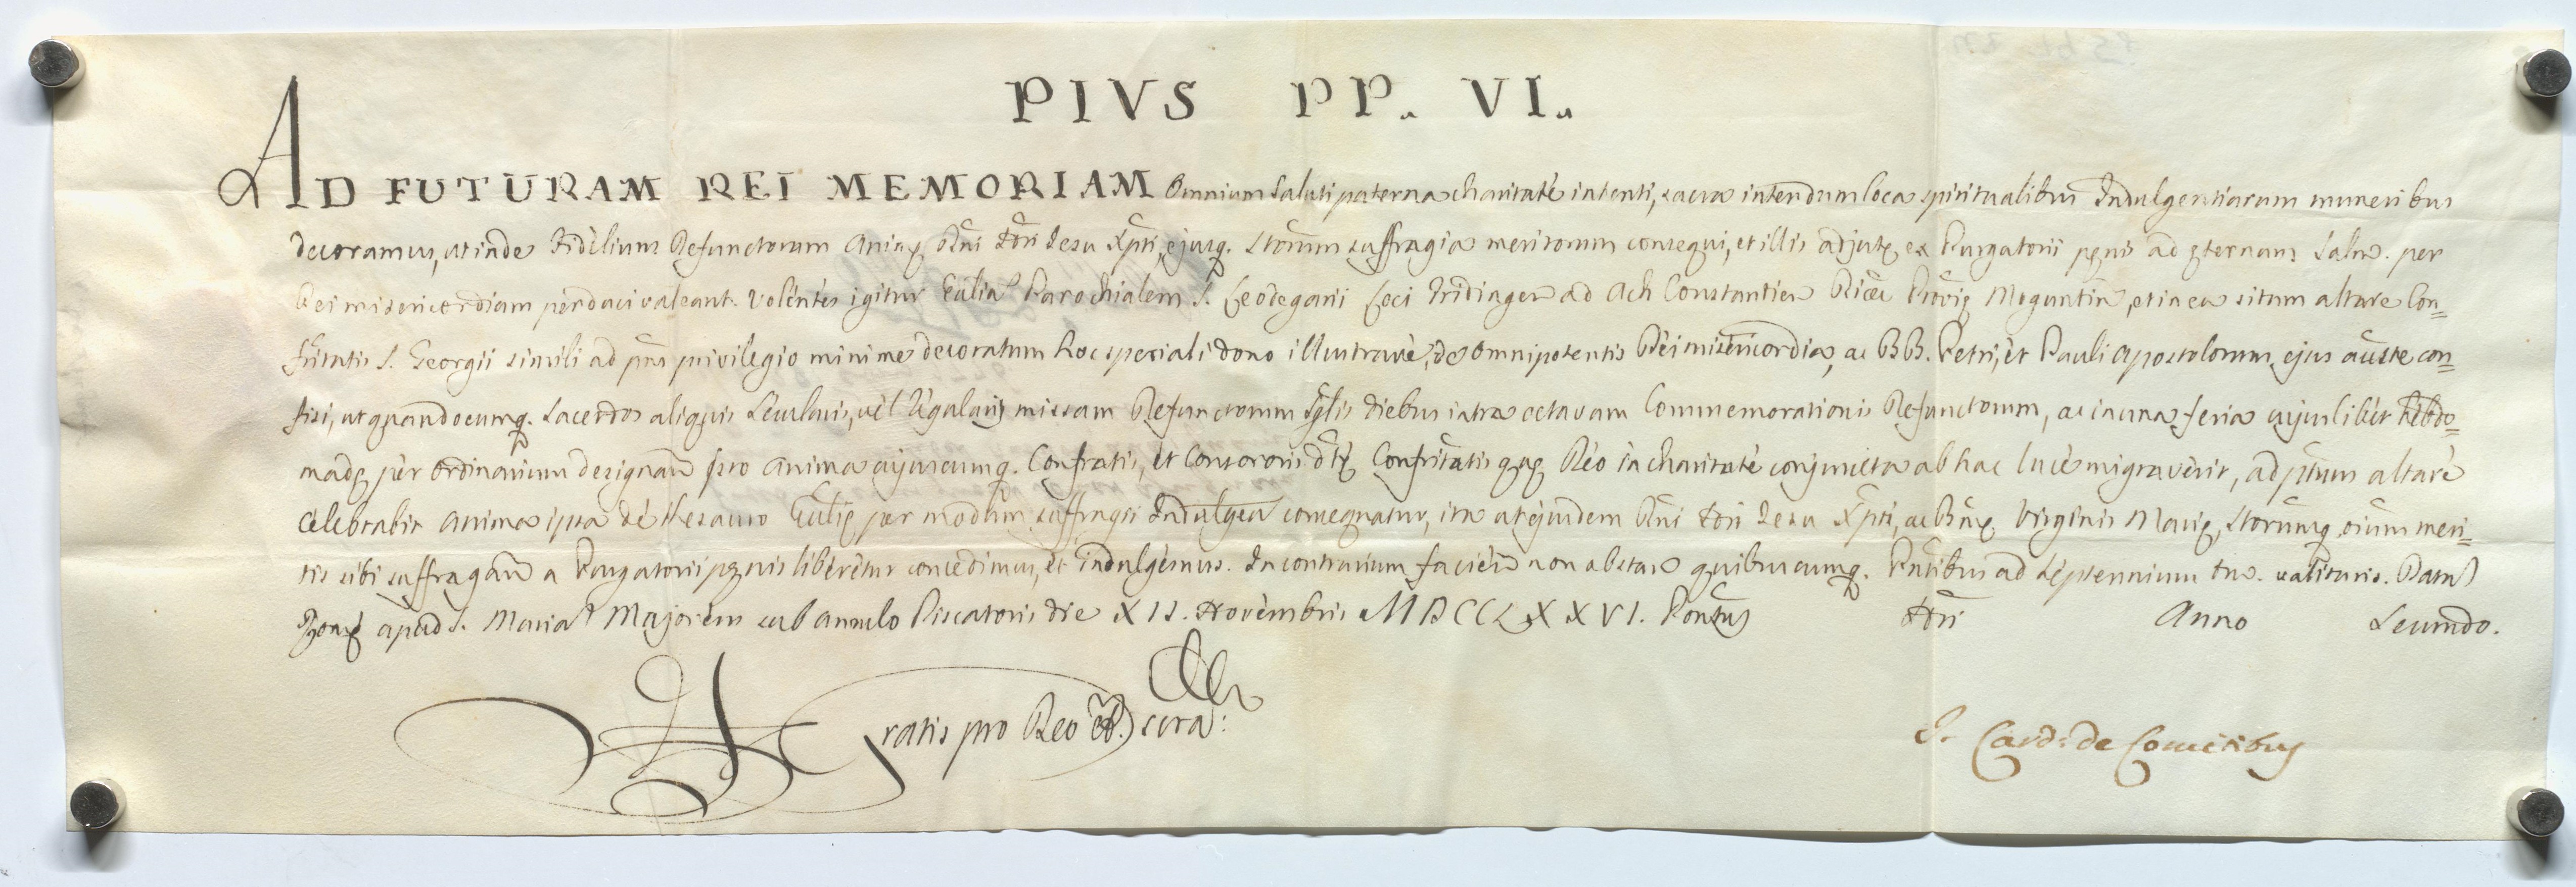 PIVS PP. VI.
AD FUTURAM REI MEMORIAM Omnium Saluti paterna charitate intenti, sacra interdum loca spiritualibus Indulgentiarum muneribus
decoramus, ut inde Fidelium Defunctorum Animę Dñi Nři Jesu Xpti, ejusq. Storum suffragia meritorum consequi, et illis adjutę ex Purgatorii pęnis ad ęternam Salm. per
Dei misericordiam perduci valeant. Volentes igitur Ecclia Parochialem S. Leodegarii Loci Fridingen ad Ach Constantien Dićec Provię Moguntin, et in ea situm altare Con=
fritatis S. Georgii simili ad pñs privilegio minime decoratum hoc speciali dono illustrare, de Omnipotentis Dei misericordia, ac BB. Petri, et Pauli Apostolorum ejus aucte con=
fisi, ut quandocumq. Sacerdos aliquis Secularis, vel Regularis missam Defunctorum Sglis diebus infra octavam Commemorationis Defunctorum, ac in una feria cujuslibet hebdo=
madę per Ordinarium designan pro Anima cujuscumq. Confratis, et Consororis dtę Confritatis quę Deo in charitate conjuncta ab hac luce migraverit, ad ptum altare
celebrabit Anima ipsa de thesauro Ecclię per modum suffragii Indulgen consequatur, ita ut ejusdem Dñi Nři Jesu Xpti, ac Bmę. Virginis Marię, Storumq. oium meri=
tis sibi suffragan a Purgatorii pęnis liberetur concedimus, et indulgemus. In contrarium facien non obstan quibuscumq. Pñtibus ad Septennium tm. valituris. Datu
Romę apud S. Maria Majorem sub annulo Piscatoris die XII. Novembris MDCCLXXVI. Pontus Nři Anno Secundo.
Gratis pro Deo et scra:
I. Card. de Comitibus